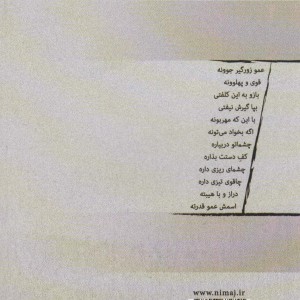 عمو زورگیر جوونه
قوی و پهلوونه
بازو به این کلفتی
بپا گیرش نیفتی
با این که مهربونه
اگه بخواد می‌تونه
چشماتو دربیاره
کف دستت بذاره
چشمای ریزی داره
چاقوی تیزی داره
دراز و با هیبته
اسمش عمو قدرته
www.nimaj.ir